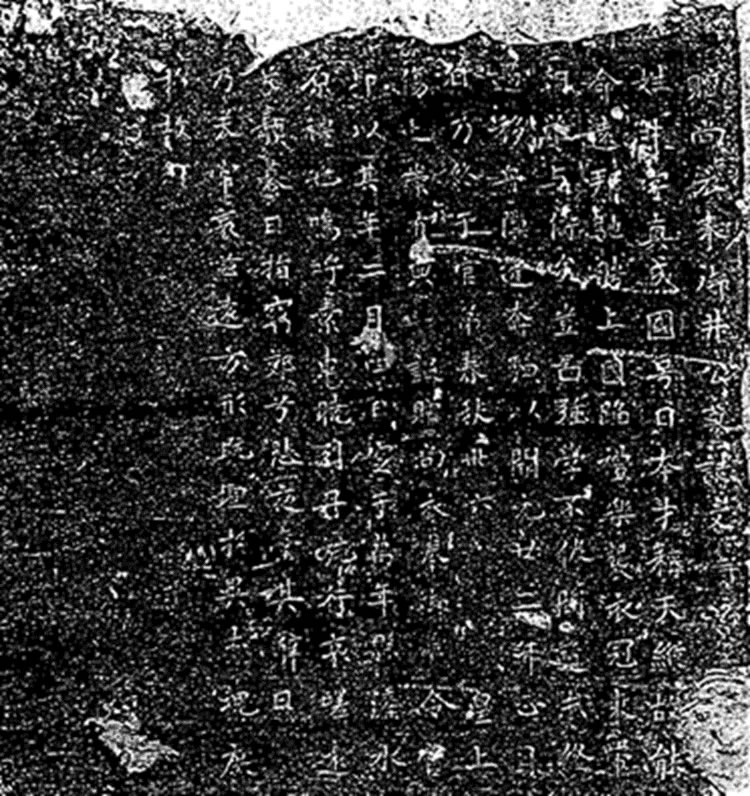 贈尚衣奉御井公墓誌文并序
姓井字真成國号日本才稱天縱故能
命遠邦馳騁上國蹈礼樂襲衣冠束帶
朝難与儔矣豈圖強學不倦聞道未終
遇移舟隙逢奔駟以開元廿二年正月
日乃終于官弟春秋卅六皇上
傷追崇有典詔贈尚衣奉御葬令官
即以其年二月四日窆于萬年縣滻水
原礼也嗚呼素車曉引丹旐行哀嗟遠
頹暮日指窮郊兮悲夜臺其辭曰
乃天常哀茲遠方形既埋于異土魂庶
歸故